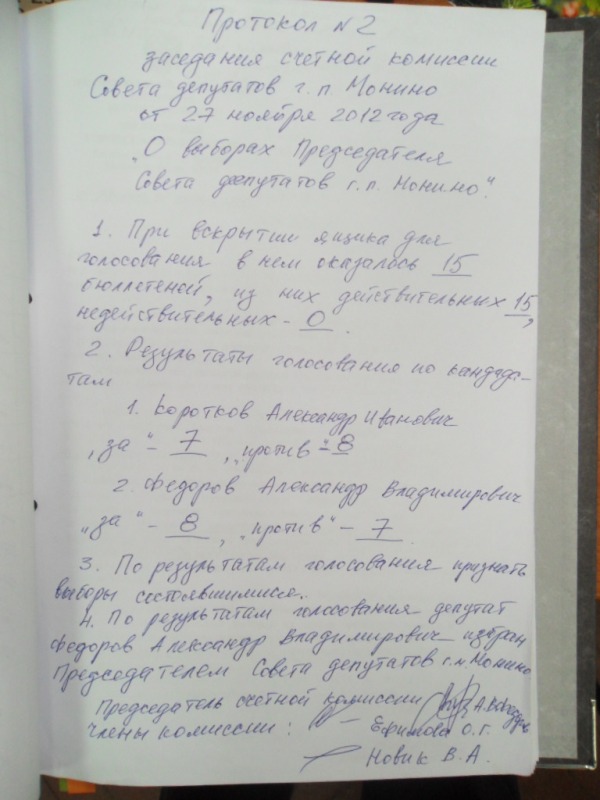 Протокол №2
заседания счетной комиссии
Совета депутатов г.п Монино
от 27 ноября 2012 года
„О выборах Председателя
Совета депутатов г.п. Монино".
1. При вскрытии ящика для
голосования в нем оказалось 15
бюллетеней, из них действительных 15,
недействительных - 0.
2. Результаты голосования по кандида-
там
1. Коротков Александр Иванович
„за" - 7, „против" - 8
2. Федоров Александр Владимирович
„за" - 8, „против" - 7.
3. По результатам голосования признать
выборы состоявшимися.
4. По результатам голосования депутат
Федоров Александр Владимирович избран
Председателем Совета депутатов г.п. Монино
Председатель счетной комиссии
члены комиссии: Ефимова О.Г.
Новик В.А.